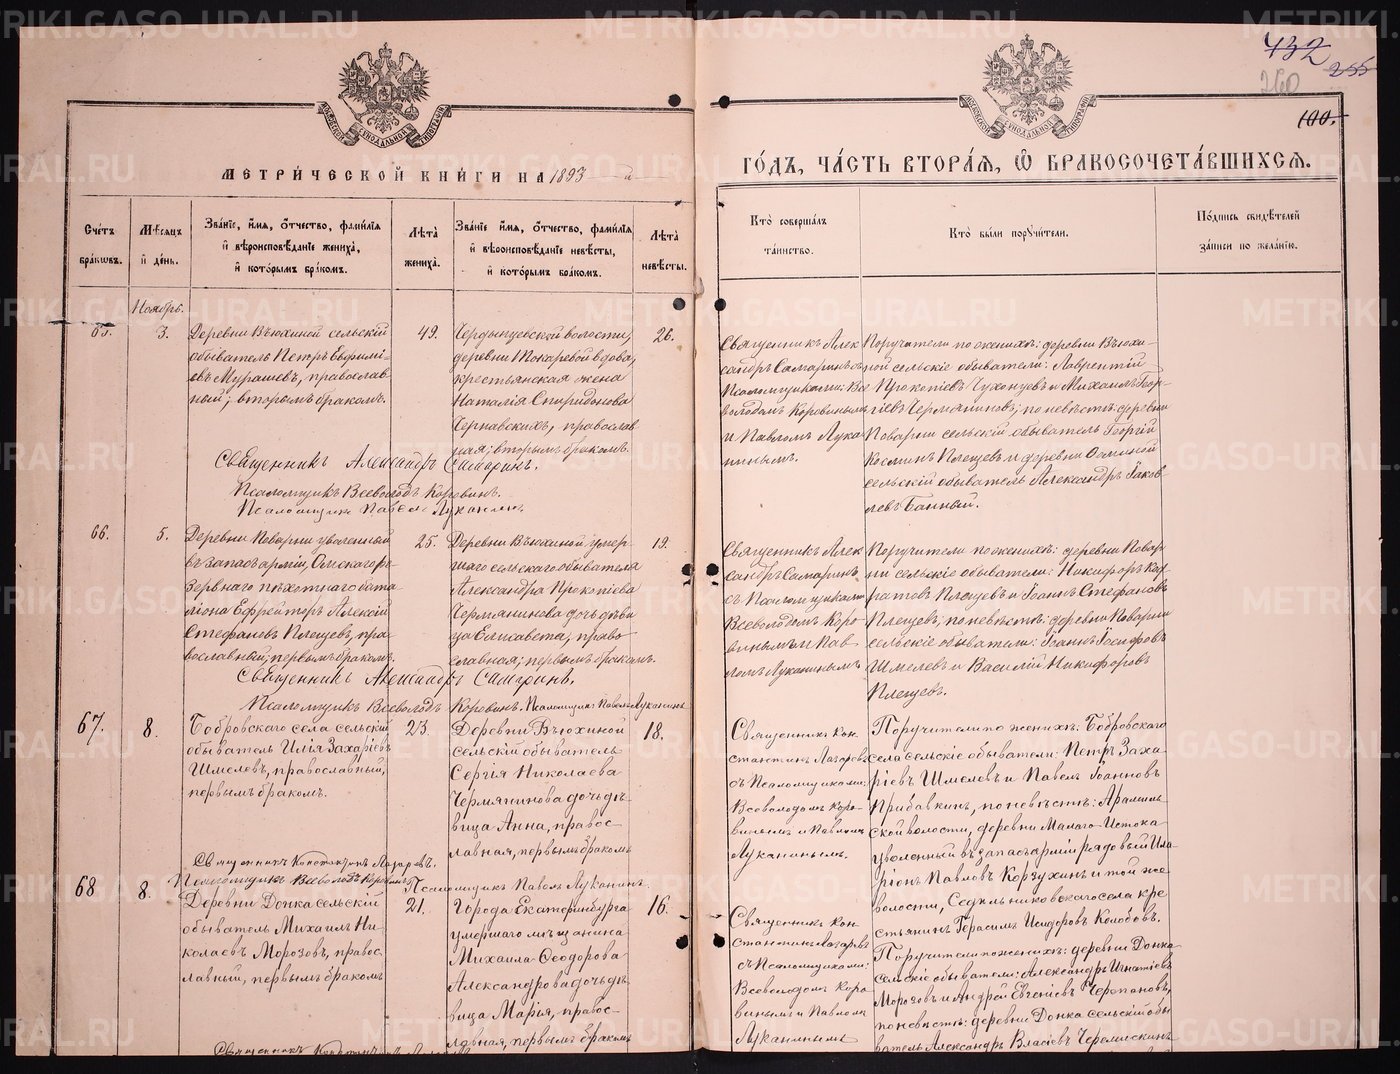 432
255
260
100.
МЕТРИ́ЧЕСКОЙ КНИ́ГИ НА 1893
ГО́ДЪ, ЧА́СТЬ ВТОРА́Я, Ѿ БРАКОСОЧЕТА́ВШИХСЯ.
Сче́тъ бра́ковъ.
Мѣ́сяцъ и҆ де́нь.
Зва́нїе, и҆́мя, ѻ҆́тчество, фами́лїя и҆ вѣроисповѣ́данїе жениха̀, и҆ кото́рымъ бра́комъ.
Лѣ́та жениха̀.
Зва́нїе, и҆́мя, ѻ҆́тчество, фами́лїя и҆ вѣроисповѣ́данїе невѣ́сты, и҆ кото́рымъ бра́комъ.
Лѣ́та невѣ́сты.
Кто̀ соверша́лъ та́инство.
Кто̀ бы́ли порꙋчи́тели.
По́дпись свидѣ́телей за́писи по жела́нїю.
Ноябрь.
65.
3.
Деревни Вьюхиной сельскій
обыватель Петръ Евфимі-
евъ Мурашевъ, православ-
ный; вторымъ бракомъ.
49.
деревни Токаревой вдова,
крестьянская жена
Наталія Спиридонова
Чернавскихъ, православ
ная; вторымъ бракомъ.
26.
Священникъ Алек
сандръ Самаринъ съ
Псаломщиками: Все
володомъ Коровинымъ
и Павломъ Лука
нинымъ.
Поручители по женихѣ: деревни Вьюхи-
ной сельскіе обыватели: Лаврентій
Прокопіевъ Чуханцевъ и Михаилъ Геор-
гіевъ Чермяниновъ; по невѣстѣ: деревни
Поварни сельскій обыватель Георгій
Козминъ Плещевъ и деревни
сельскій обыватель Александръ Іаков
левъ Банный.
Священникъ Александръ Самаринъ.
Псаломщикъ Всеволодъ Коровинъ.
Псаломщикъ Павелъ Луканинъ.
66.
5.
Деревни Поварни уволенный
въ запас арміи, Омскаго ре
зервнаго пѣхотнаго бата
ліона Ефрейторъ Алексій
Стефановъ Плещевъ, пра
вославный; первымъ бракомъ.
25.
Деревни Вьюхиной, умер
шаго сельскаго обывателя
Александра Прокопіева
Чермянинова дочь дѣви
ца Елисавета, право
славная; первымъ бракомъ.
19.
Священникъ Алек
сандръ Самаринъ
съ Псаломщиками
Всеволодомъ Коро
винымъ и Пав
ломъ Луканинымъ
Поручители по женихѣ: деревни Повар
ни сельскіе обыватели: Никифоръ Код
ратовъ Плещевъ и Іоаннъ Стефановъ
Плещевъ; по невѣстѣ: деревни Поварни
сельскіе обыватели: Іоаннъ Іосифовъ
Шмелевъ и Василій Никифоровъ
Плещевъ.
Священникъ Александръ Самаринъ.
Псаломщикъ Всеволодъ Коровинъ. Псаломщикъ Павелъ Луканинъ
67.
8.
Бобровскаго села сельскій
обыватель Илія Захаріевъ
Шмелевъ, православный,
первымъ бракомъ.
23.
Деревни Вьюхиной
сельскій обыватель
Сергія Николаева
Чермянинова дочь дѣ
вица Анна, правос
лавная, первымъ бракомъ
18.
Священникъ Кон
стантинъ Лазаревъ
съ Псаломщиками:
Всеволодомъ Коро-
винымъ и Павломъ
Луканинымъ.
Поручители по женихѣ: Бобровскаго
села сельскіе обыватели: Петръ Заха
ріевъ Шмелевъ и Павелъ Іоанновъ
Прибавкинъ, по невѣстѣ: Арамиль
ской волости, деревни Малаго Истока
уволенный въ запасъ арміи рядовый Ила
ріонъ Павловъ Корзухинъ и той же
волости, Седельниковскаго села кре
стьянинъ Герасимъ Исидоровъ Колобовъ.
Священникъ Константинъ Лазаревъ.
Псаломщикъ Всеволодъ Коровинъ
Псаломщикъ Павелъ Луканинъ.
68
8.
Деревни Донка сельскій
обыватель Михаилъ Ни
колаевъ Морозовъ, правос
лавный, первымъ бракомъ
21.
Города Екатеринбурга
умершаго мѣщанина
Михаила Ѳеодорова
Александрова дочь дѣ
вица Марія, правос
лавная, первымъ бракомъ
16.
Священникъ Кон
стантинъ Лазаревъ
съ Псаломщиками:
Всеволодомъ Коро
винымъ и Павломъ
Луканинымъ
Поручители по женихѣ: деревни Донка
сельскіе обыватели: Александръ Игнатіевъ
Морозовъ и Андрей Евгеніевъ Черепановъ,
по невѣстѣ: деревни Донка сельскій обы
ватель Александръ Власіевъ
METRIKI.GASO-URAL.RU